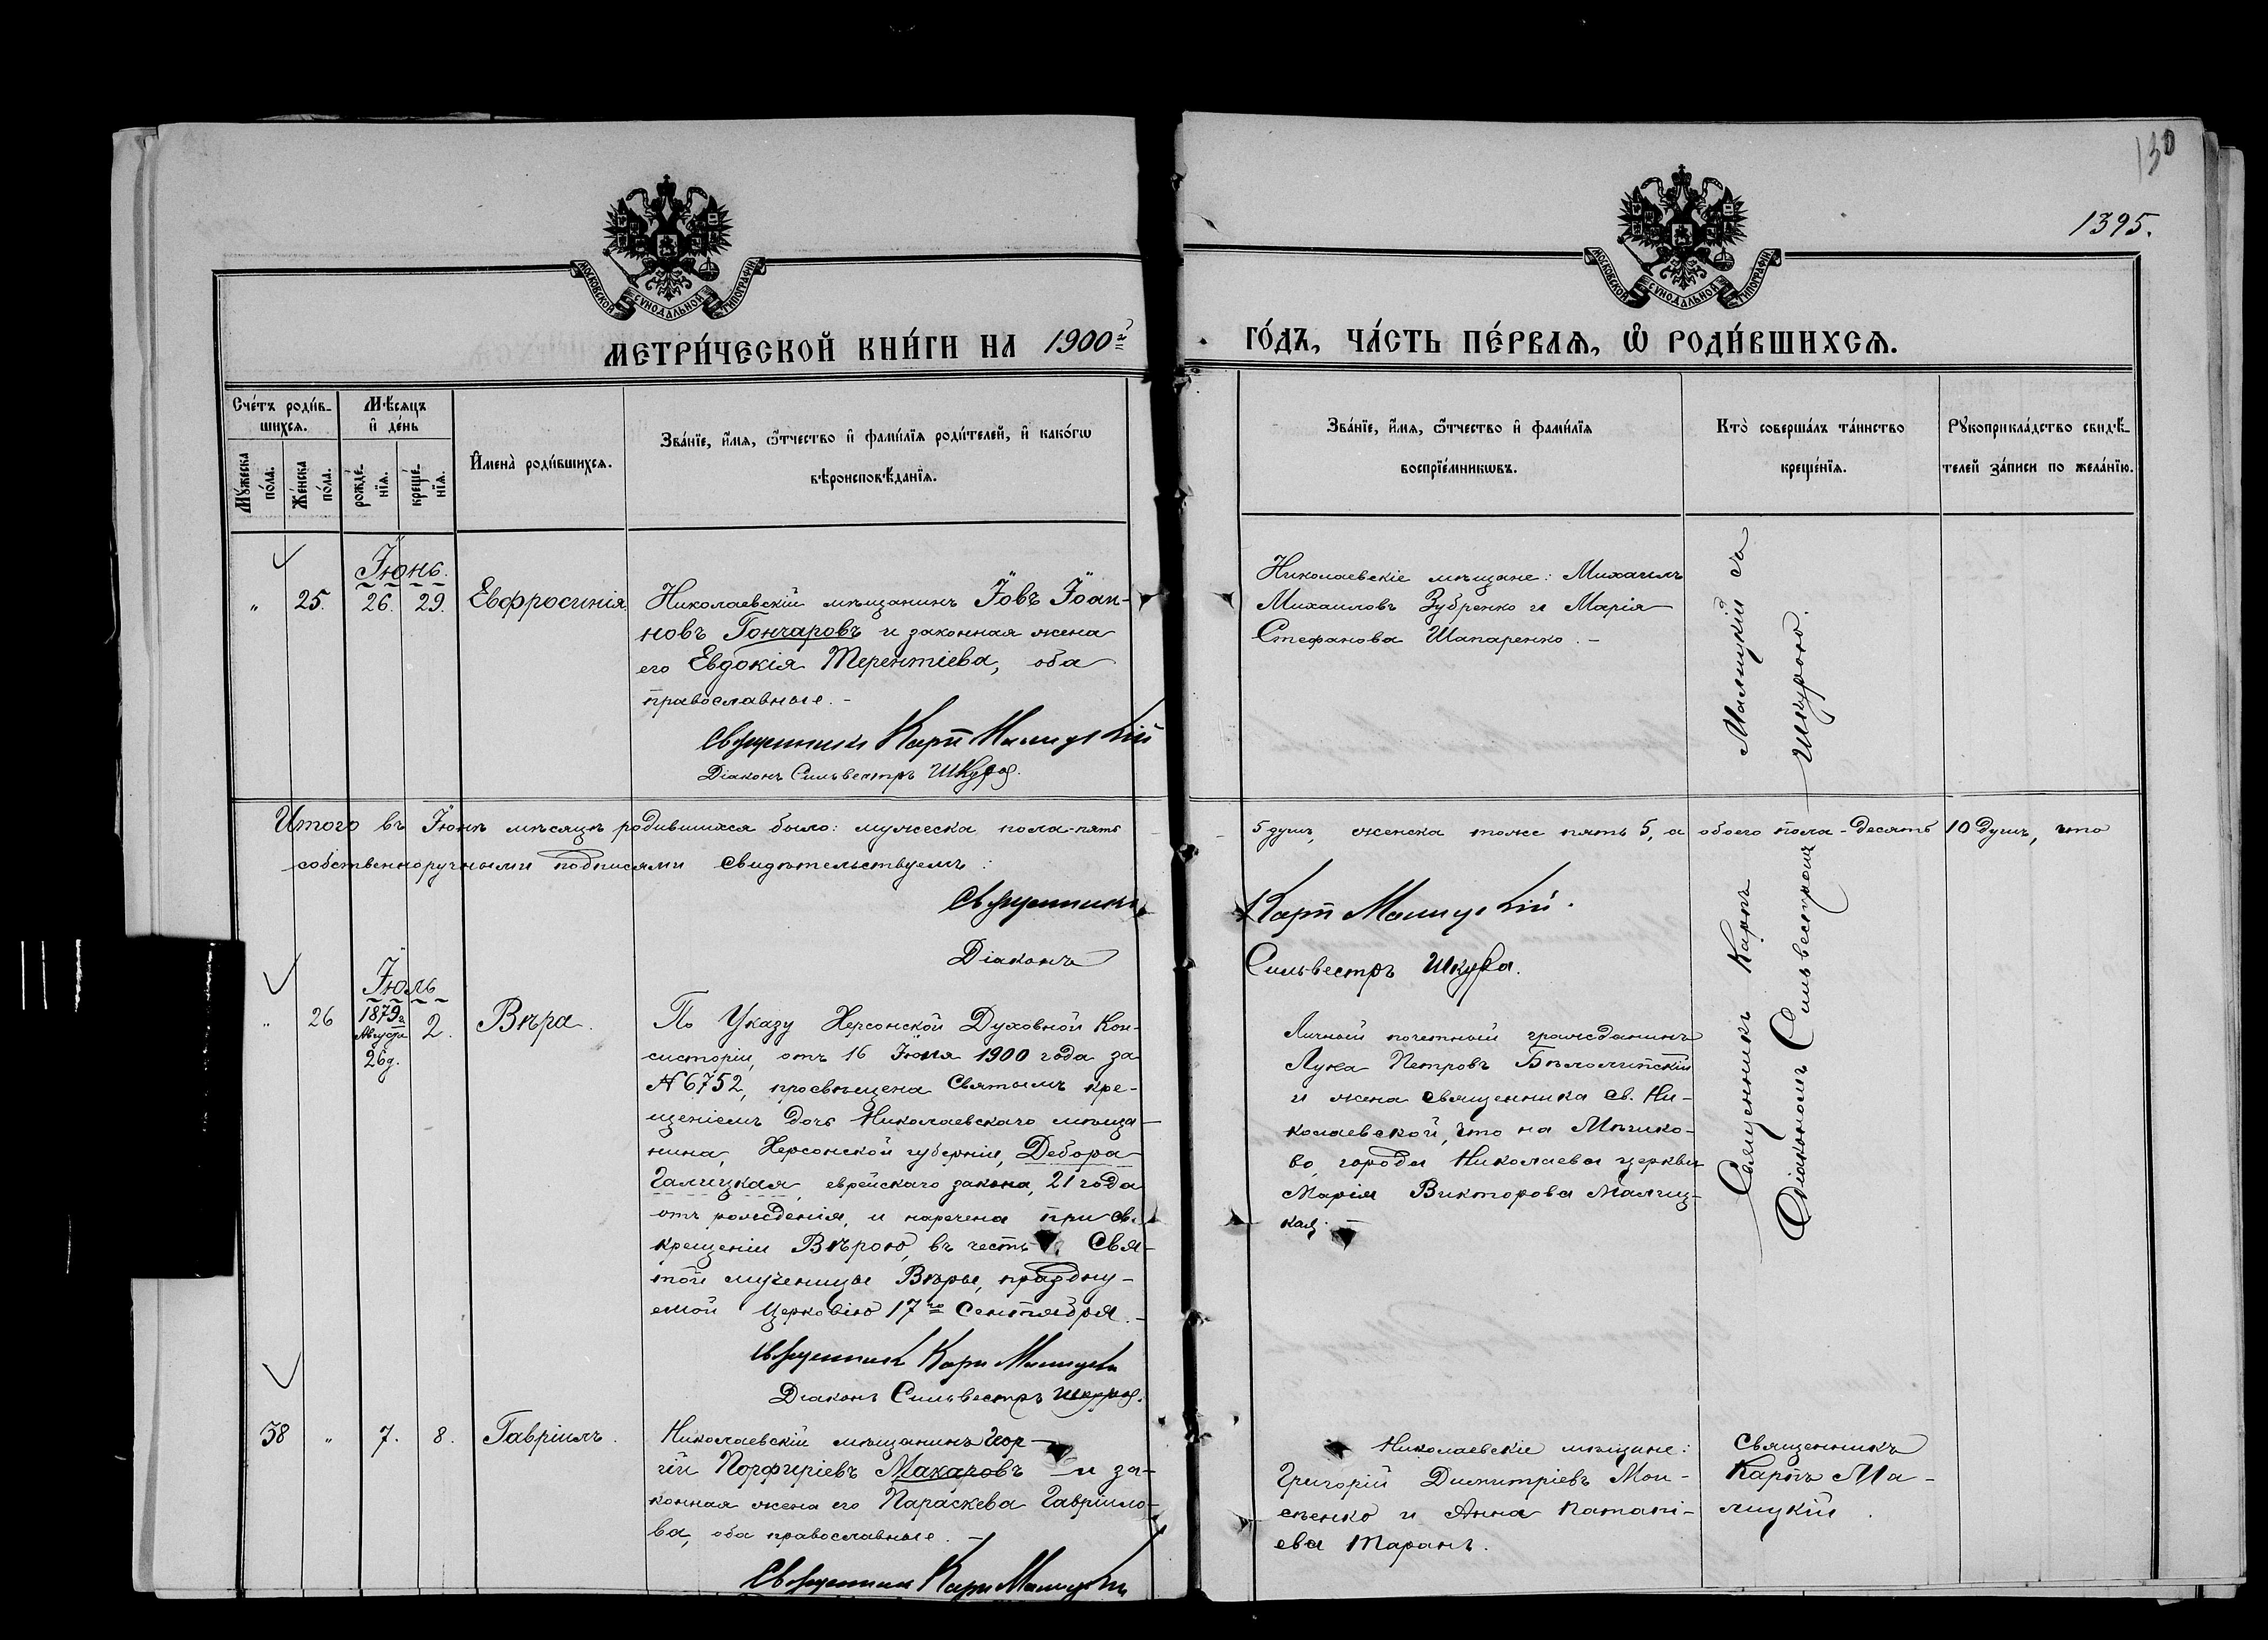 130
1395.
МОСКОВСКОЙ СѴНОДАЛЬНОЙ ТИПОГРАФІИ
МОСКОВСКОЙ СѴНОДАЛЬНОЙ ТИПОГРАФІИ
МЕТРИ́ЧЕСКОЙ КНИ́ГИ НА 1900 г
ГО́ДЪ, ЧА́СТЬ ПЕ́РВАѦ, Ѿ РОДИ́ВШИХСѦ.
Сче́тъ роди́в-
шихсѧ.
Мꙋ́жеска
по́ла.
Же́нска
по́ла.
Мѣ́сѧцъ
и҆ де́нь
рожде́-
нїѧ.
креще́-
нїѧ.
И҆мена̀ роди́вшихсѧ.
Зва́нїе, и҆́мѧ, ѻ҆́тчество и҆ фамѝлїѧ роди́телей, и҆ како́гѡ
вѣроисповѣ́данїѧ.
Зва́нїе, и҆́мѧ, ѻ҆́тчество и҆ фамѝлїѧ
воспрїе́мникѡвъ.
Кто̀ соверша́лъ та́инство
креще́нїѧ.
Рꙋкоприкла́дство свидѣ́-
телей за́писи по жела́нїю.
Іюнь.
" 25. 26. 29. Евфросинія
Николаевскій мѣщанинъ Іовъ Іоан-
новъ Гончаровъ и законная жена
его Евдокія Терентіева, оба
православные. -
Священникъ Карпъ Малицкій
Діаконъ Сильвестръ Шкура.
Николаевскіе мѣщане: Михаилъ
Михаиловъ Зубренко и Марія
Стефанова Шапаренко. -
Священникъ Карпъ Малицкій съ
Діакономъ Сильвестромъ Шкурою.
Итого въ Іюнѣ мѣсяцѣ родившихся было: мужеска пола-пять 5 душъ, женска тоже пять 5, а обоего пола-десять 10 душъ, что
собственноручными подписями свидѣтельствуемъ:
Священникъ Карпъ Малицкій.
Діаконъ Сильвестръ Шкура.
Іюль
" 26 1879 г. Августа 26 д. 2. Вѣра.
По Указу Херсонской Духовной Кон-
систоріи, отъ 16 Іюня 1900 года за
№ 6752, просвѣщена Святымъ кре-
щеніемъ дочь Николаевскаго мѣща-
нина, Херсонской губерніи, Дебора
Галицкая, еврейскаго закона, 21 года
отъ рожденія, и наречена при св.
крещеніи Вѣрою, въ честь Свя-
той мученицы Вѣры, праздну-
емой Церковію 17го Сентября. -
Священникъ Карпъ Малицкій
Діаконъ Сильвестръ Шкура.
Личный почетный гражданинъ
Лука Петровъ Бѣлолипскій
и жена священника св. Ни-
колаевской, что на Мѣшко-
во, города Николаева церкви
Марія Викторова Малиц-
кая. -
38 " 7. 8. Гавріилъ.
Николаевскій мѣщанинъ Геор-
гій Порфиріевъ Макаровъ и за-
конная жена его Параскева Гаврiило-
ва, оба православные. -
Священникъ Карпъ Малицкій
Николаевскіе мѣщане:
Григорій Димитріевъ Мои-
сеенко и Анна Патапі-
ева Таранъ.
Священникъ
Карпъ Ма-
лицкій.